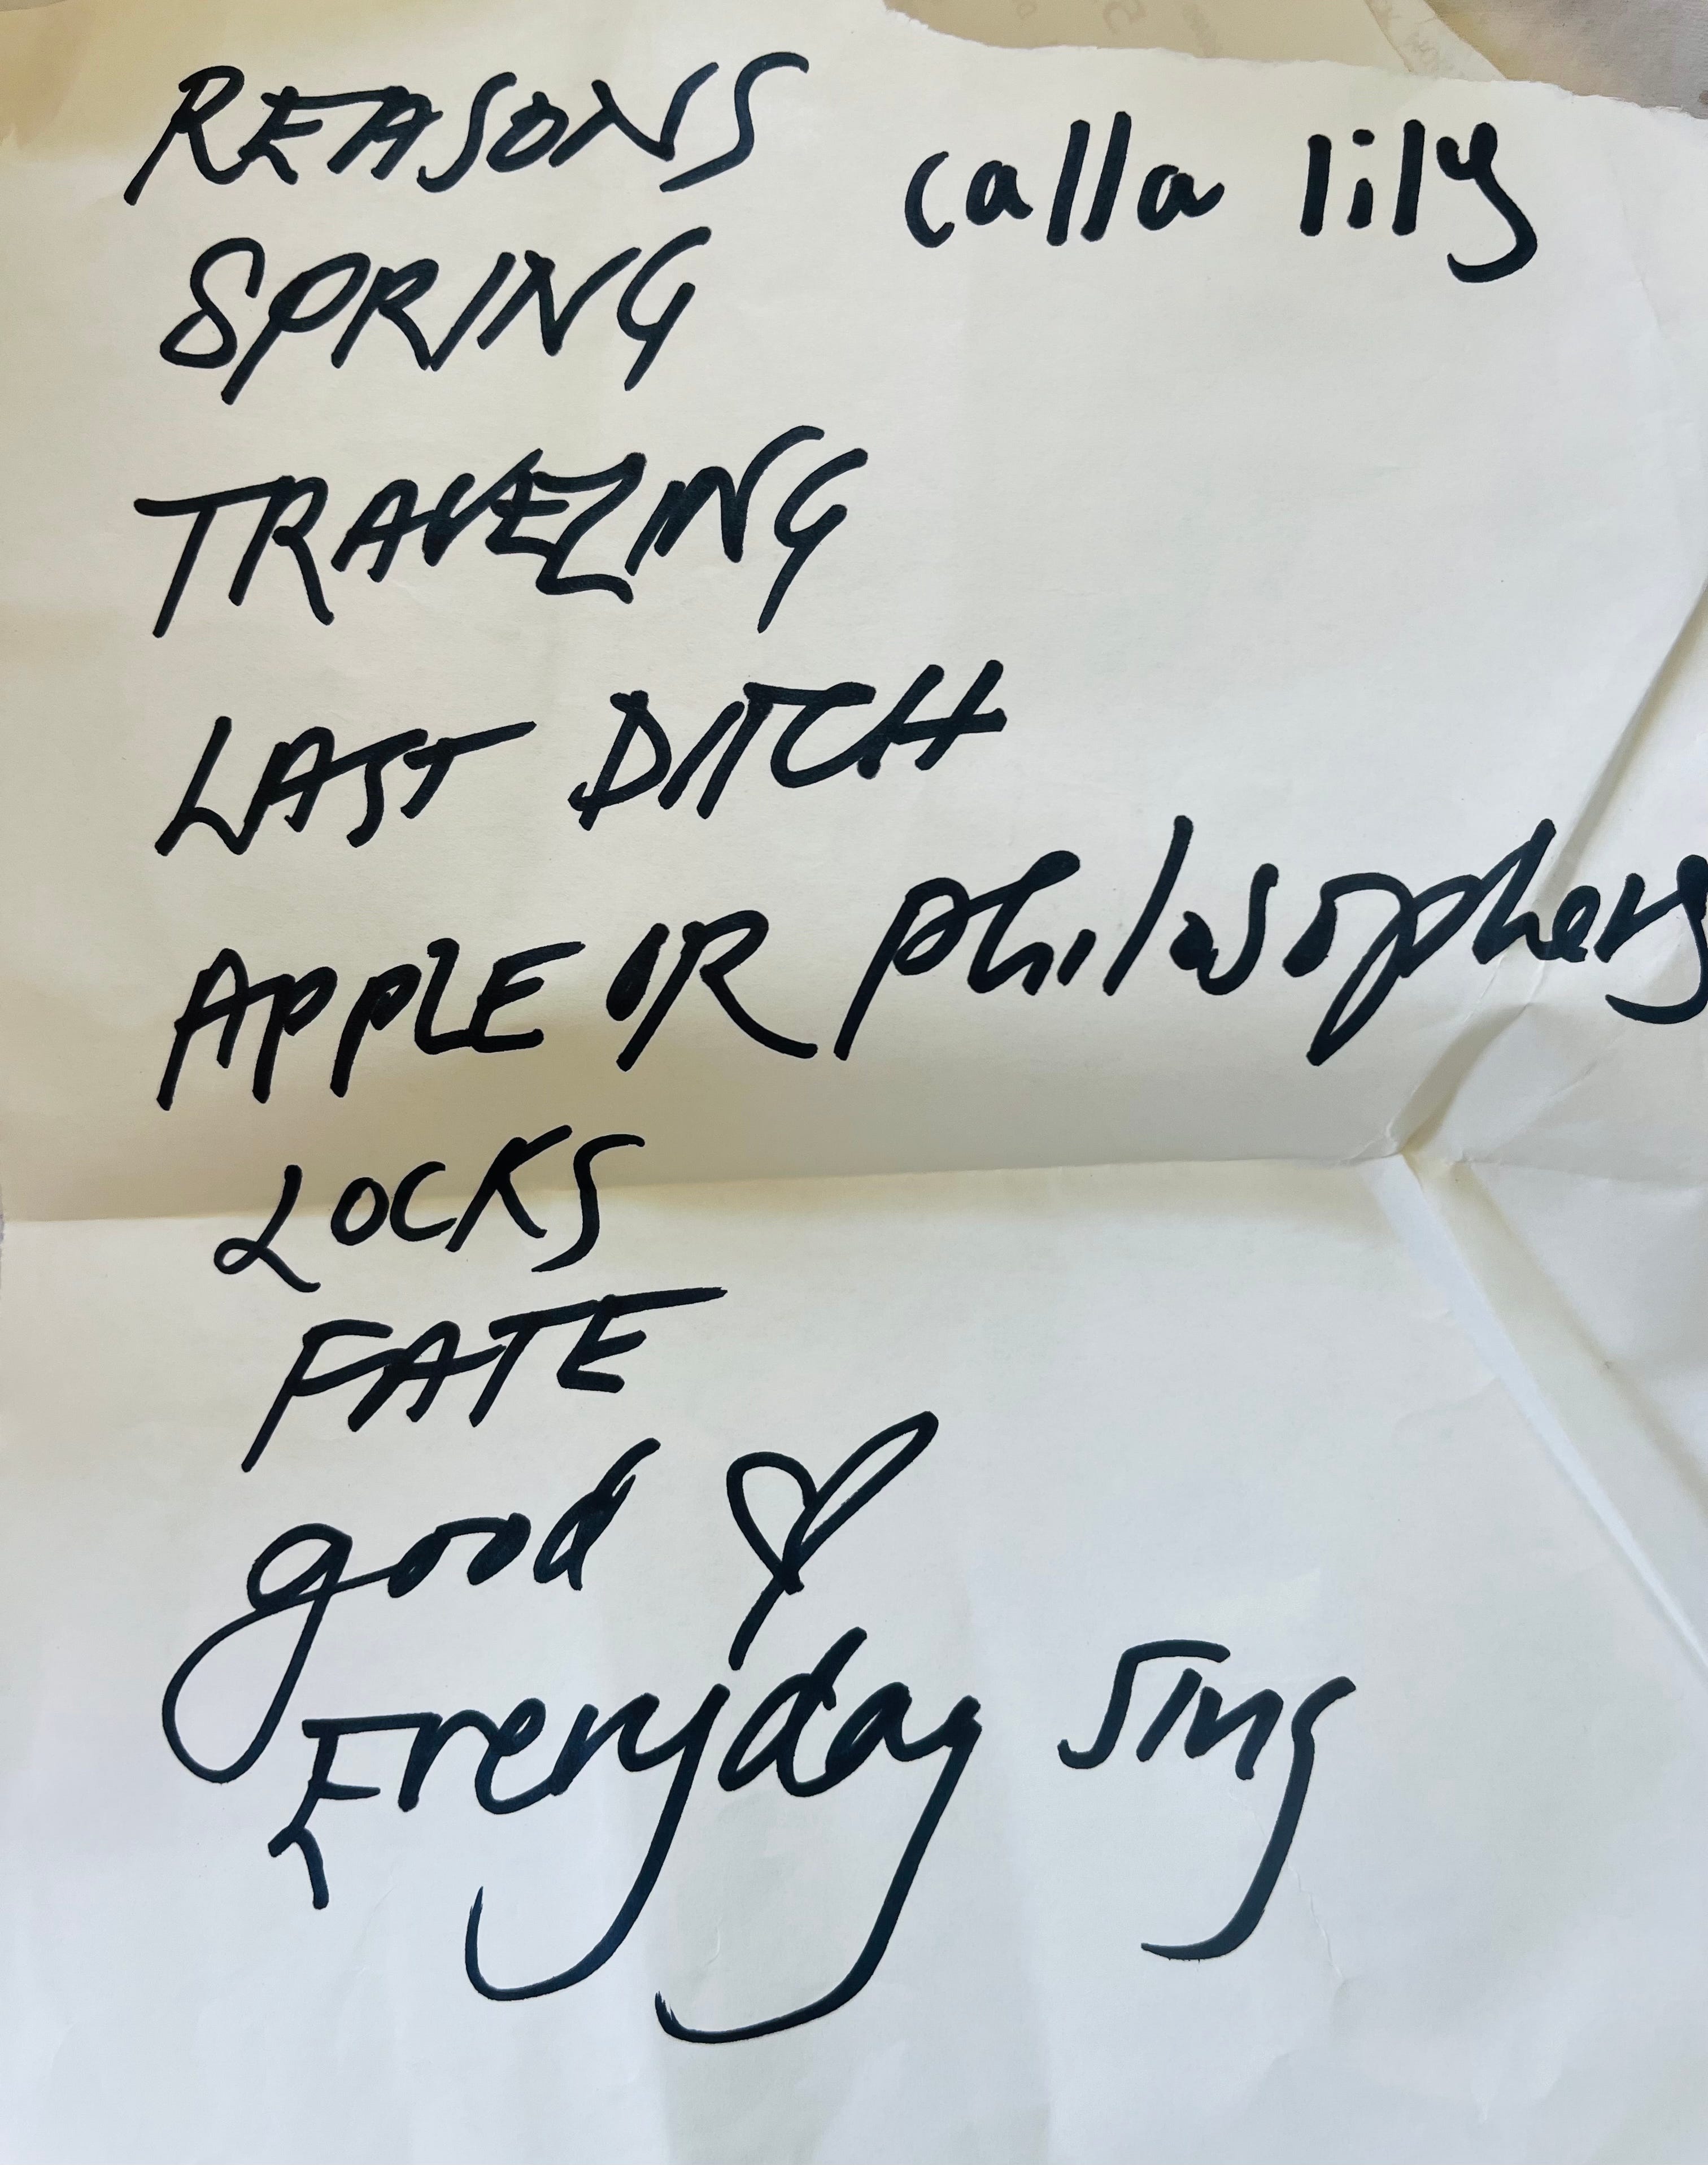 REASONS calla lily
SPRING
TRAVELING
LAST DITCH
APPLE OR philosophers
LOCKS
FATE
good ♡
Everyday sing